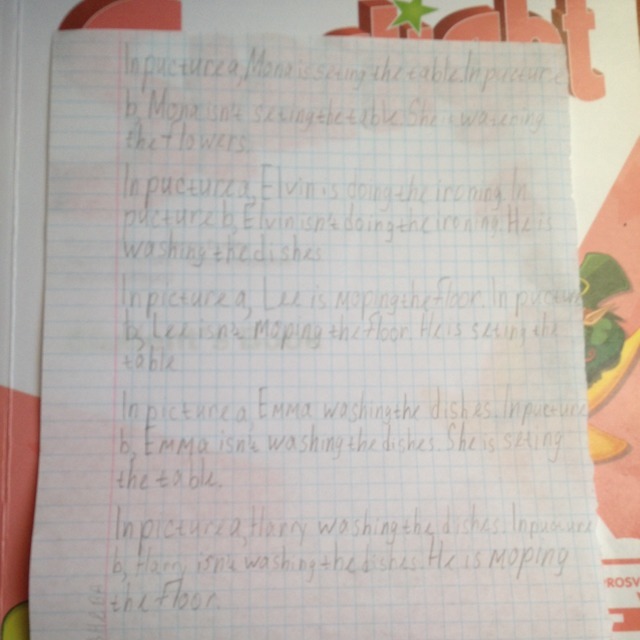 In picture a, Mona is seting the table. In picture
b, Mona isn't seting the table. She is watering
the flowers.
In picture a, Elvin is doing the ironing. In
picture b, Elvin isn't doing the ironing. He is
washing the dishes
In picture a, Lee is moping the floor. In picture
b, Lee isn't moping the floor. He is seting the
table
In picture a, Emma washing the dishes. In picture
b, Emma isn't washing the dishes. She is seting
the table.
In picture a, Harry washing the dishes. In picture
b, Harry isn't washing the dishes. He is moping
the floor
ROSV